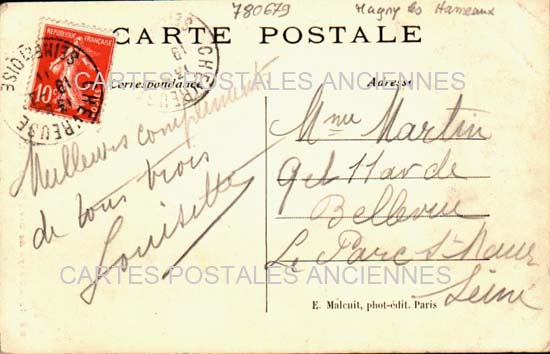 780679
Magny les Hameaux
CARTE POSTALE
Correspondance
Adresse
RÉPUBLIQUE FRANÇAISE
10
CHEVREUSE
SEINE ET OISE
CHEVREUSE
CARTES POSTALES ANCIENNES
Meilleurs compliments
de tous trois
Louisette
Mme Martin
9 et 11 av de
Bellevue
Le Parc St Maur
Seine
CARTES POSTALES ANCIENNES
E. Malcuit, phot-édit. Paris